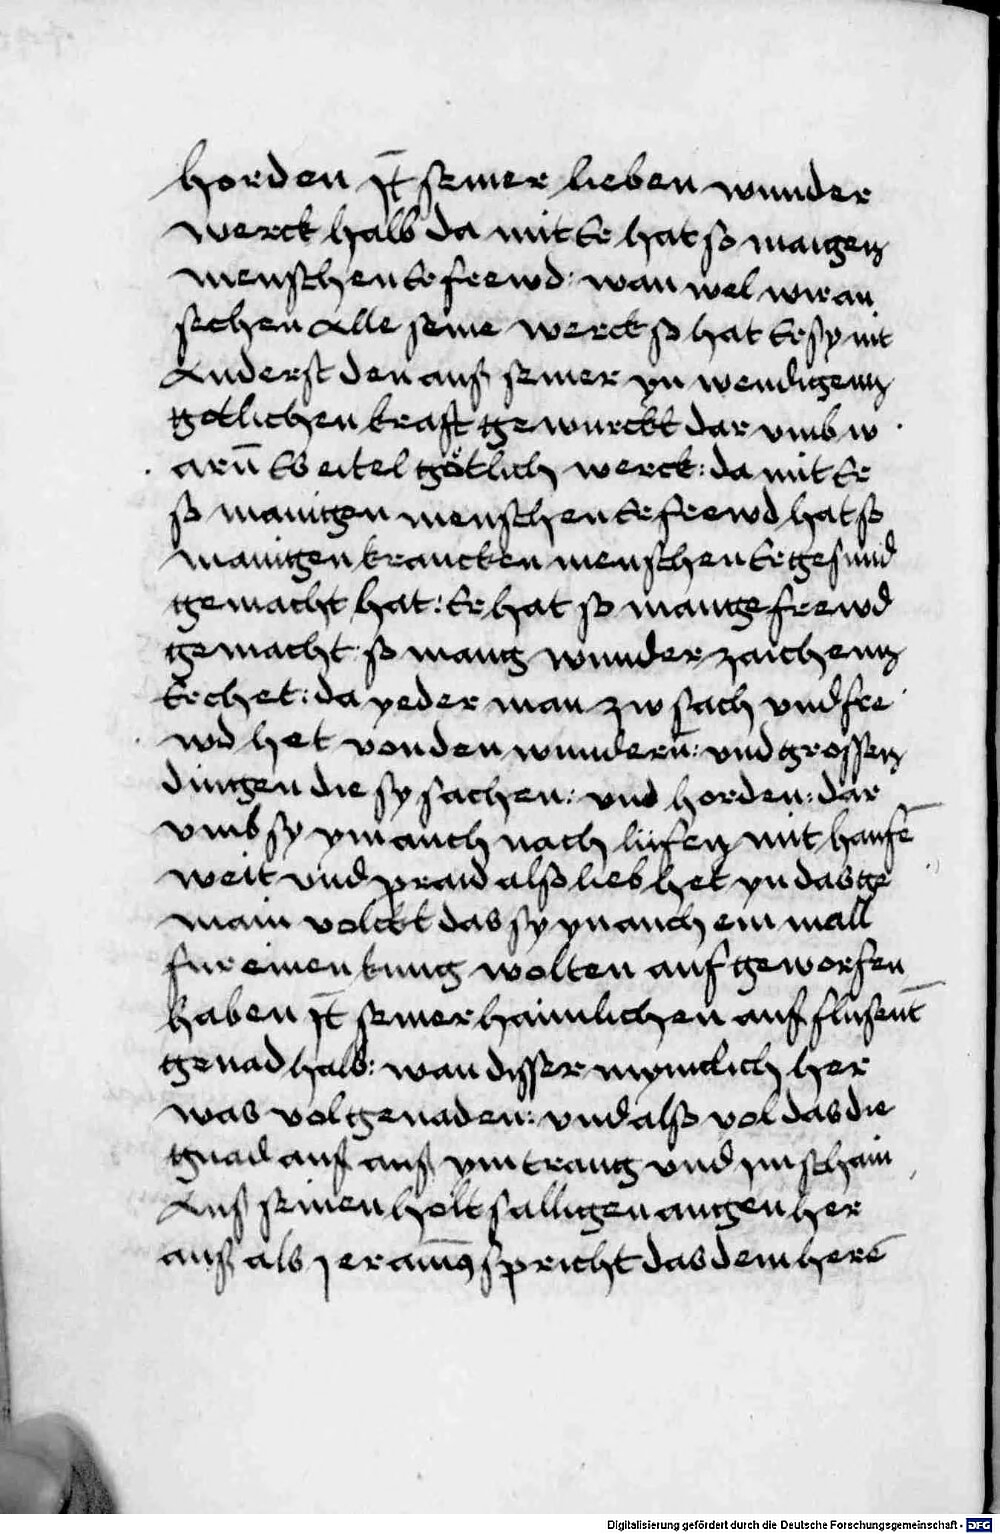 horden Jt̄ seiner lieben wunder
werck halb da mit Er hat so maigen
menschen Erfrewd: wan wel wir an
sechen Alle seine werck so hat Er sy nit
Anderst den auß seiner yn wendigenn
gotlichen kraft gewurckt dar umb w
arn̄ Es eitel götlich werck: da mit Er
so manigen menschen Erfrewd hat so
manigen krancken menschen Er gesund
gemacht hat: Er hat so mange frewd
gemacht so mang wunder zaichenn
Er thet: da yeder man zw sach und fre
wd het von den wundern̄: und grossen
dingen die sy sachen: und horden: dar
umb sy ym auch nach lüfen mit haufē
weit und praid also lieb het yn das ge
main volckt das sy yn auch ein mall
fur einen kung wolten auf geworfen
haben Jt̄ seiner haimlichen auf flusent̄
genad halb: wan disser myniclich her
was vol genaden: und also vol das die
gnad auf auß ym trang und ym schain
Auß seinen holtsalligen augen her
auß als Jeramus spricht das dem herē
Digitalisierung gefördert durch die Deutsche Forschungsgemeinschaft - DFG